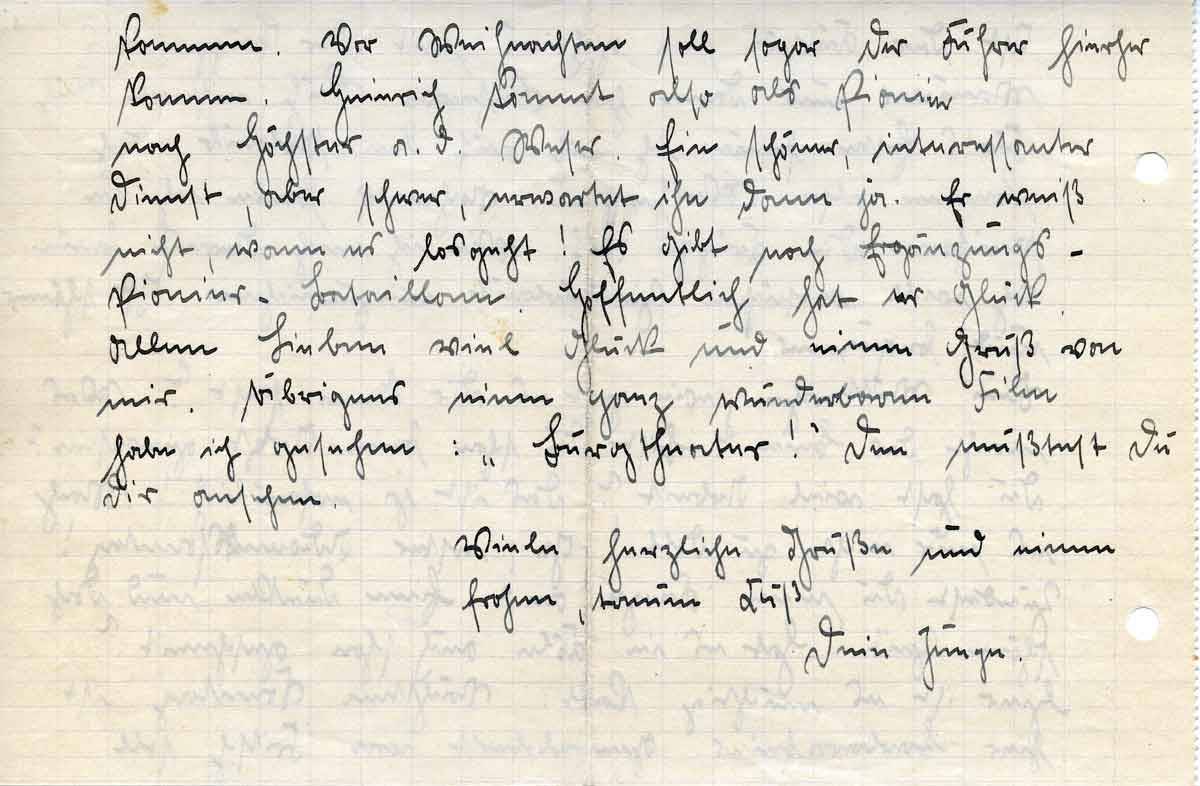 kommen. Vor Weihnachten soll sogar der Führer hierher
kommen. Heinrich kommt also als Pionier
nach Höchster a. d. Weser. Ein schöner, interessanter
Dienst, aber schwer, erwartet ihn dann ja. Er weiß
nicht, wann es losgeht! Es gibt noch Ergänzungs-
Pionier-Bataillone. Hoffentlich hat er Glück.
Allen Lieben viel Glück und einen Gruß von
mir. Übrigens einen ganz wunderbaren Film
habe ich gesehen: „Burgtheater!" Den mußtest Du
Dir ansehen.
Viele herzliche Grüße und einen
frohen, treuen Kuß
Dein Junge.